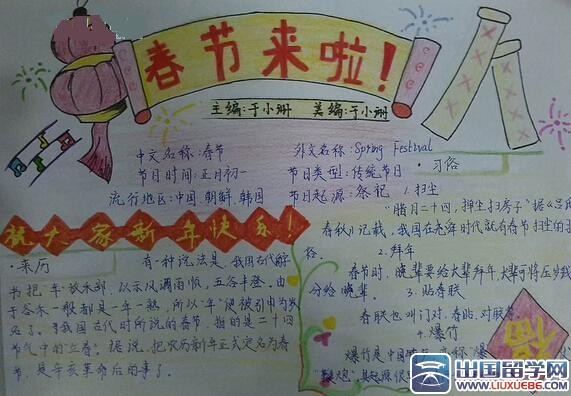 春节来啦!
主编:于小珊 美编:于小珊
中文名称:春节
外文名称:Spring Festival
节日时间:正月初一
节日类型:传统节日
流行地区:中国,朝鲜,韩国
节日起源:祭祀
祝大家新年快乐!
·来历
有一种说法是,我国古代
书把"年"放禾部,以示风调雨顺,五谷丰登。由
于谷禾一般都是一年一熟,所以"年"便被引申为
名了。我国古代时所说的春节,指的是二十四
节气中的"立春"。据说,把农历新年正式定名为春
节,是辛亥革命后的事了。
·习俗
1.扫尘
"腊月二十四,掸尘扫房子"据《吕氏
春秋》记载,我国在尧舜时代就有春节扫尘的
俗。
2.拜年
春节时,晚辈要给大辈拜年,大辈可将压岁
分给晚辈。
3.贴春联
春联也叫门对、春贴、对联
4.爆竹
爆竹是中国 称"爆
"鞭炮",其起源很
福
出国留学网
WWW.LIUXUE86.COM